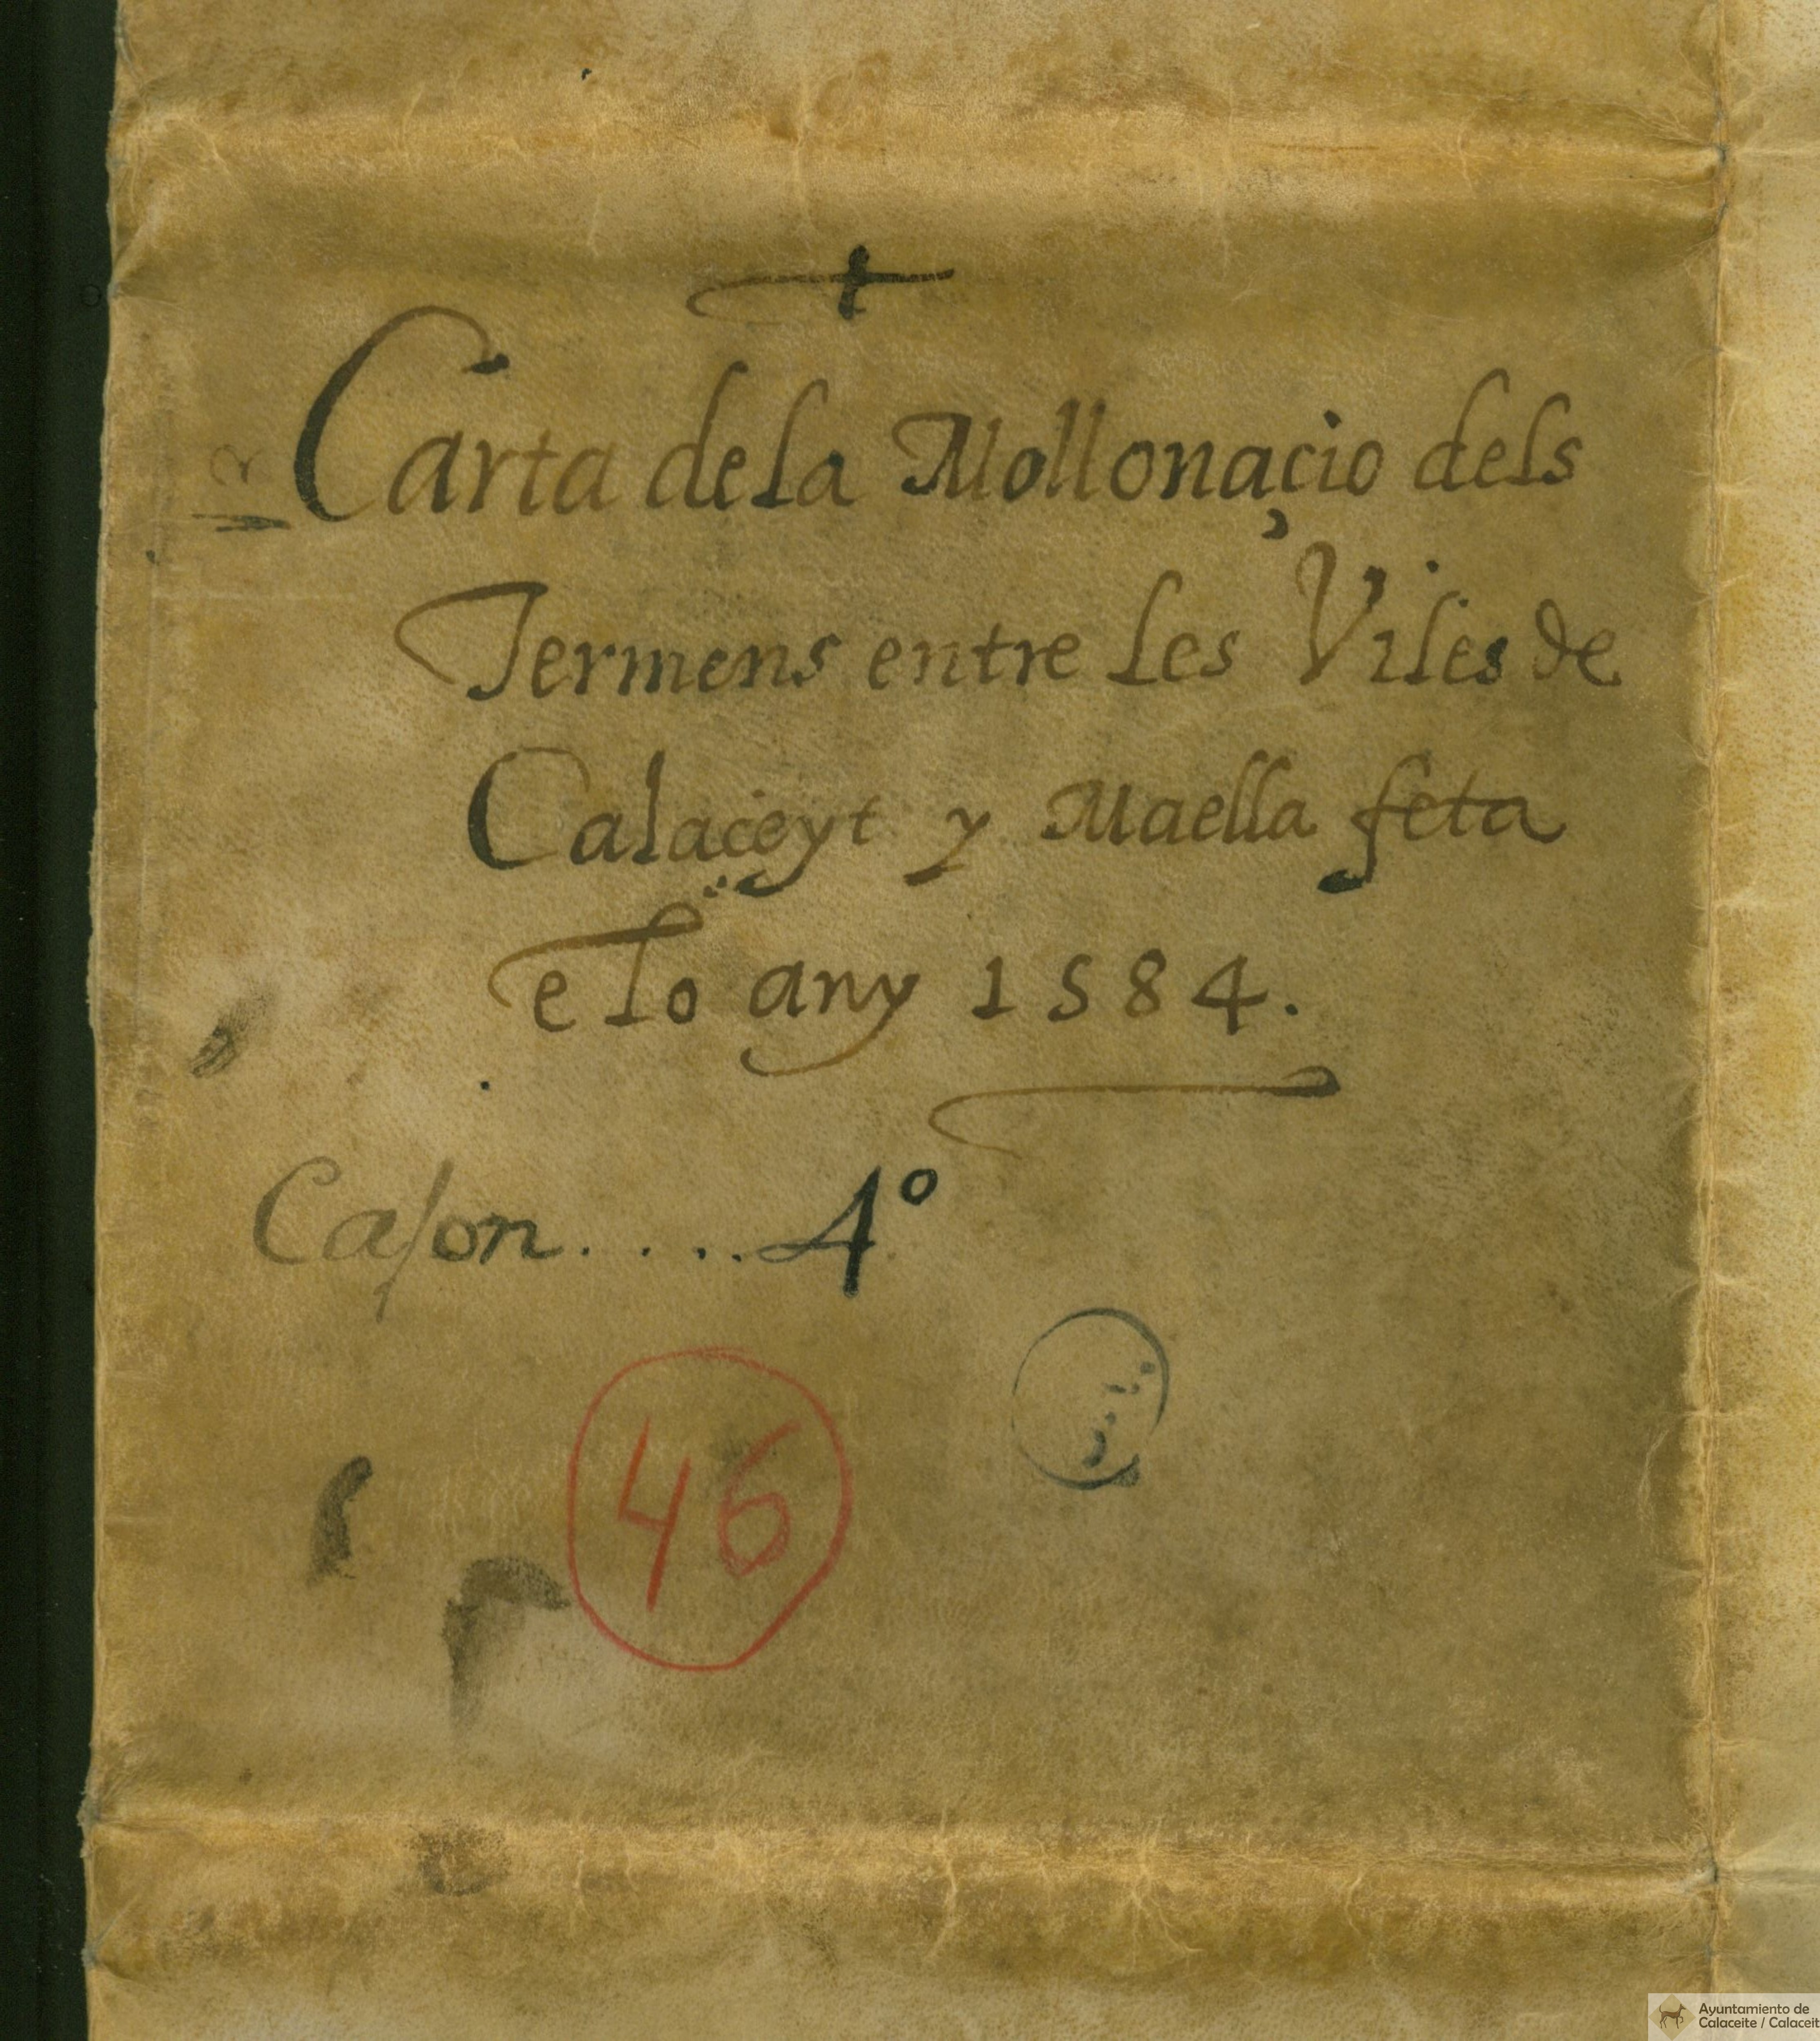 Carta dela Mollonaçio dels
Termens entre les Viles de
Calaçeyt y Maella feta
e lo any 1584.
Caſon..... 4º
46
Ayuntamiento de
Calaceite / Calaceit